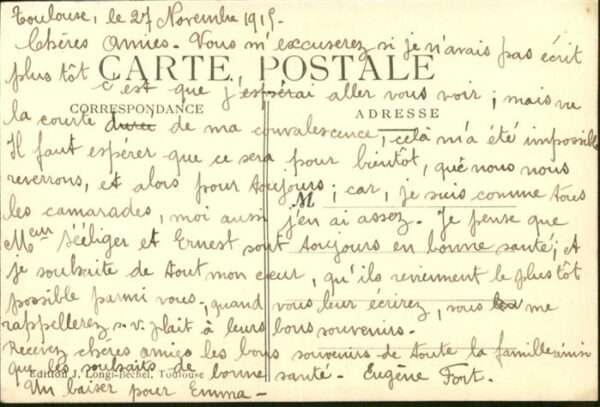 Toulouse, le 27 Novembre 1915.
Chères Amies. Vous m'excuserez si je n'avais pas écrit
plus tôt c'est que j'espérai aller vous voir ; mais vu
CARTE POSTALE
CORRESPONDANCE
ADRESSE
la courte durée de ma convalescence, celà m'a été impossible
Il faut espérer que ce sera pour bientôt, que nous nous
reverrons, et alors pour toujours ; car, je suis comme tous
M
les camarades, moi aussi j'en ai assez. Je pense que
Meur Séeliger et Ernest sont toujours en bonne santé ; et
je souhaite de tout mon cœur, qu'ils reviennent le plus tôt
possible parmi vous, quand vous leur écrirez, vous me
rappellerez s.v. plait à leurs bons souvenirs.
Recevez chères amies les bons souvenirs de toute la famille ainsi
que les souhaits de bonne santé. Eugène Fort.
Edition J. Longi-Béchel, Toulouse
Un baiser pour Emma.